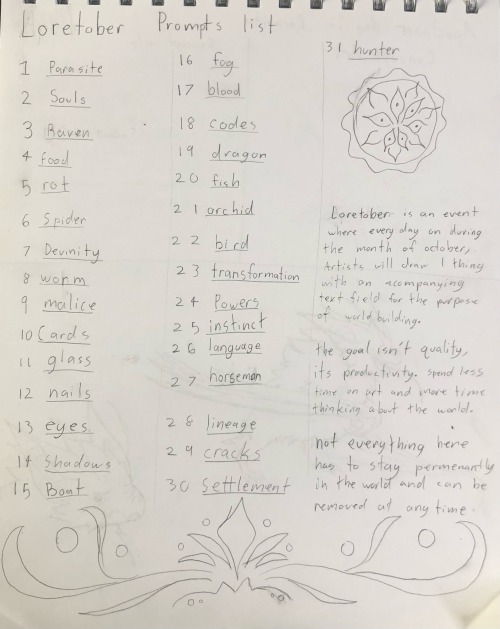 Loretober Prompts list
1 Parasite
2 Souls
3 Raven
4 food
5 rot
6 Spider
7 Devinity
8 worm
9 malice
10 Cards
11 glass
12 nails
13 eyes
14 Shadows
15 Boat
16 fog
17 blood
18 codes
19 dragon
20 fish
21 orchid
22 bird
23 transformation
24 Powers
25 instinct
26 language
27 horseman
28 lineage
29 cracks
30 Settlement
31 hunter
Loretober is an event
where every day on during
the month of october,
Artists will draw 1 thing
with an accompanying
text field for the purpose
of world building.
the goal isn't quality,
its productivity. spend less
time on art and more time
thinking about the world.
not everything here
has to stay permenantly
in the world and can be
removed at any time.